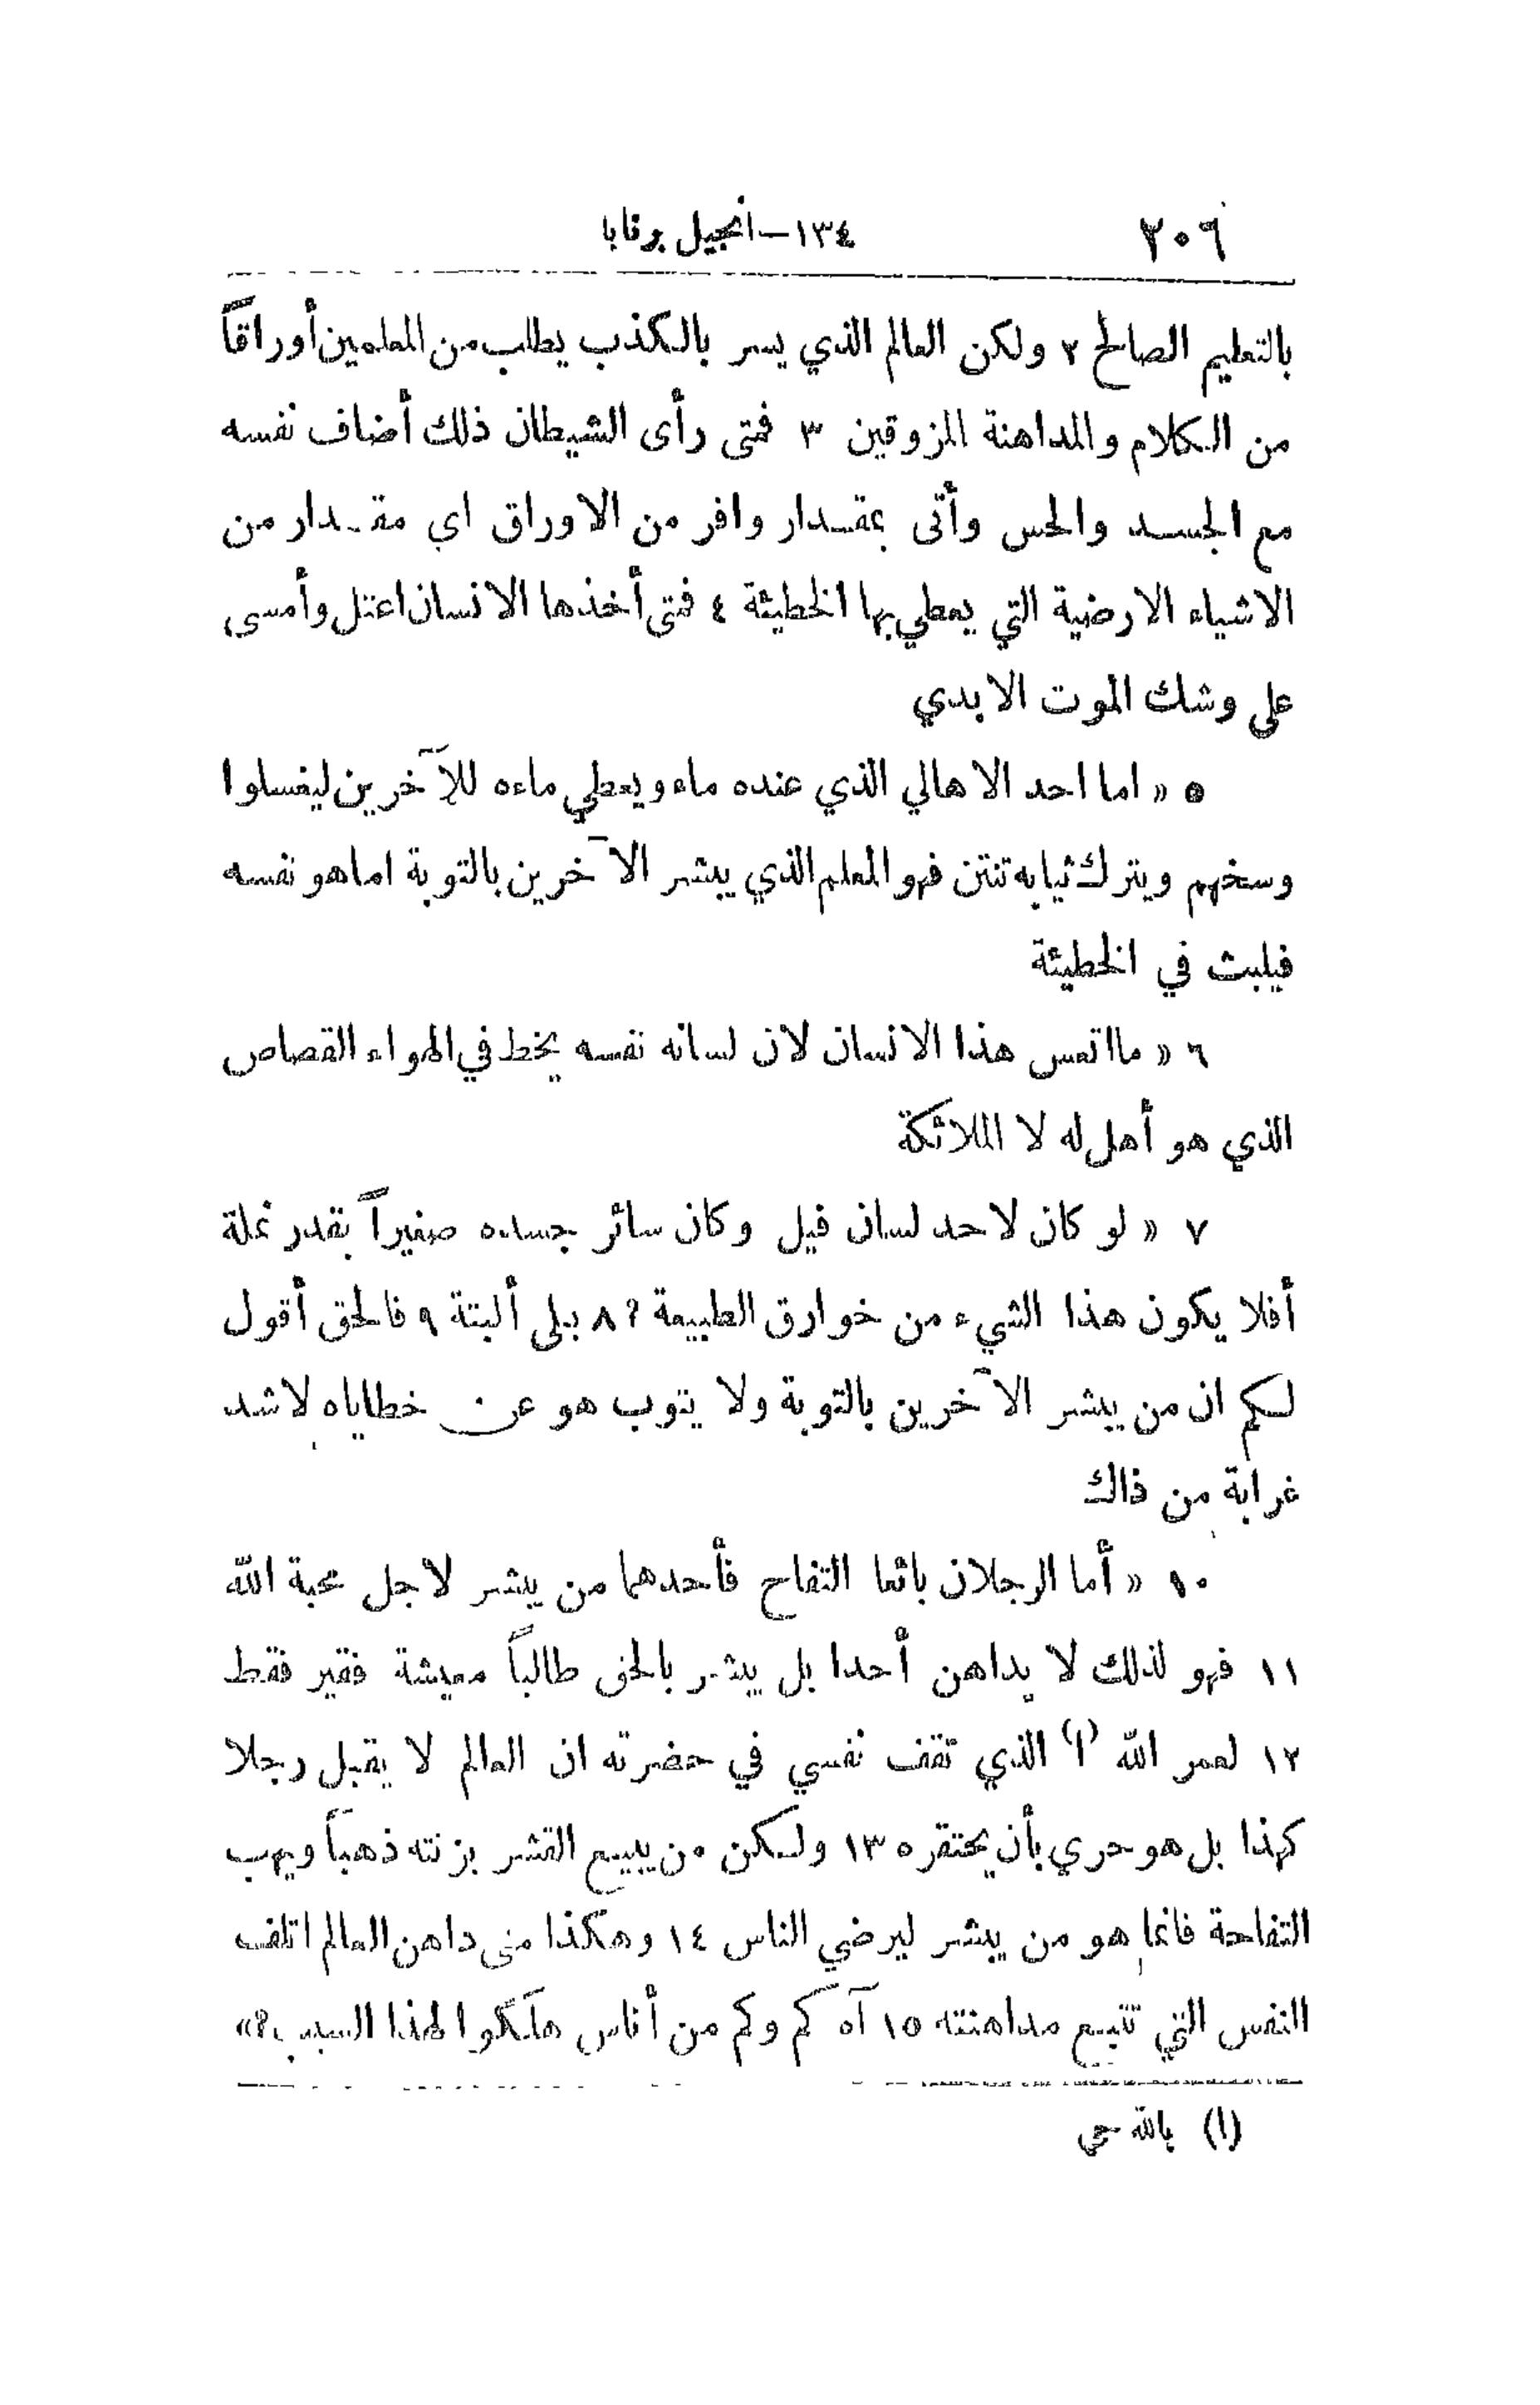 ٢٠٦ ١٣٤–أنجيل برنابا
بالتعليم الصالح ٢ ولكن العالم الذي يسر بالكذب يطلب من المعلمين أوراقاً
من الكلام والمداهنة المزوقين ٣ فمتى رأى الشيطان ذلك أضاف نفسه
مع الجسد والحس وأتى بمقدار وافر من الاوراق اي مقدار من
الاشياء الارضية التي يعطي بها الخطيئة ٤ فمتى أخذها الانسان اعتل وأمسى
على وشك الموت الابدي
٥ « اما احد الاهالي الذي عنده ماء ويعطي ماءه للآخرين ليغسلوا
وسخهم ويترك ثيابه تنتن فهو المعلم الذي يبشر الآخرين بالتوبة اما هو نفسه
فيلبث في الخطيئة
٦ « ما اتعس هذا الانسان لان لسانه نفسه يخط في الهواء القصاص
الذي هو أهل له لا الملائكة
٧ « لو كان لاحد لسان فيل وكان سائر جسده صغيراً بقدر نملة
أفلا يكون هذا الشيء من خوارق الطبيعة ؟ ٨ بلى ألبتة ٩ فالحق أقول
لكم ان من يبشر الآخرين بالتوبة ولا يتوب هو عن خطاياه لاشد
غرابة من ذاك
١٠ « أما الرجلان بائعا التفاح فأحدهما من يبشر لاجل محبة الله
١١ فهو لذلك لا يداهن أحدا بل يبشر بالحق طالباً معيشة فقير فقط
١٢ لعمر الله (ا) الذي تقف نفسي في حضرته ان العالم لا يقبل رجلا
كهذا بل هو حري بأن يحتقره ١٣ ولكن من يبيع القشر بزنته ذهباً ويهب
التفاحة فانما هو من يبشر ليرضي الناس ١٤ وهكذا متى داهن العالم اتلف
النفس التي تتبع مداهنته ١٥ آه كم وكم من أناس هلكوا لهذا السبب ؟»
(ا) بالله حي